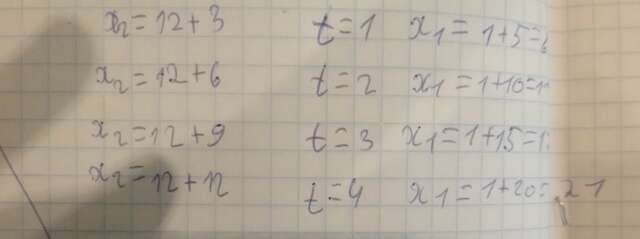 x₂=12+3 t=1 x₁=1+5=
x₂=12+6 t=2 x₁=1+10=1
x₂=12+9 t=3 x₁=1+15=1
x₂=12+12 t=4 x₁=1+20=21